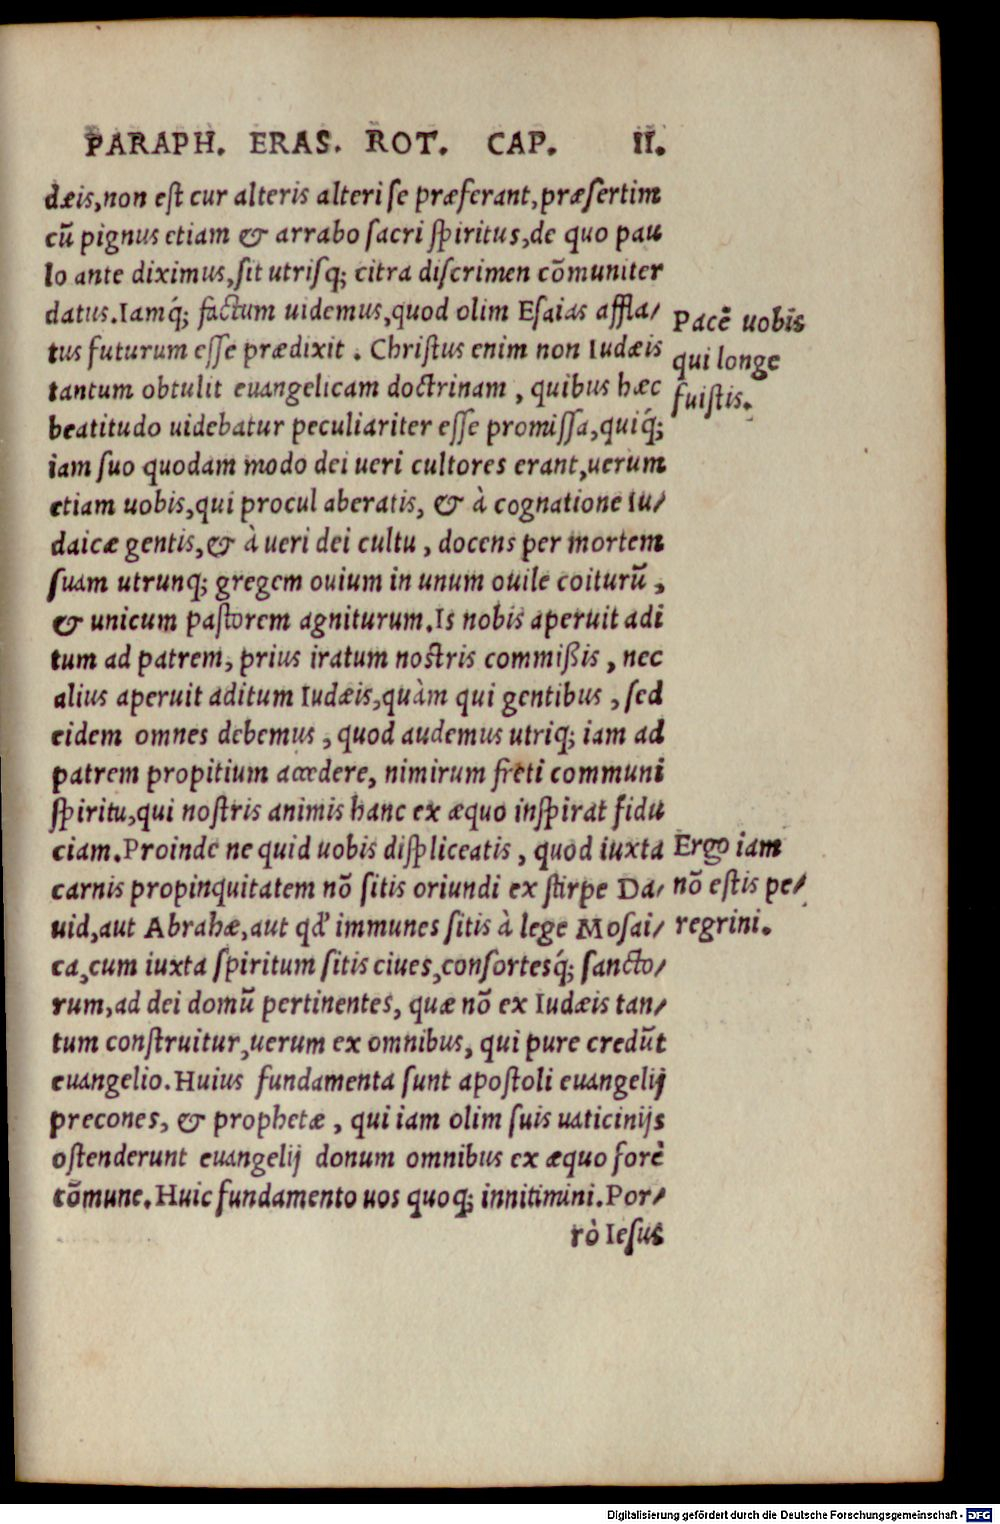 PARAPH. ERAS. ROT. CAP. II.
dæis, non est cur alteris alteri se præferant, præsertim
cū pignus etiam & arrabo sacri spiritus, de quo pau
lo ante diximus, sit utrisq; citra discrimen cōmuniter
datus. Iamq́; factum uidemus, quod olim Esaias affla/
tus futurum esse prædixit. Christus enim non Iudæis
tantum obtulit euangelicam doctrinam, quibus hæc
beatitudo uidebatur peculiariter esse promissa, quiq́;
iam suo quodam modo dei ueri cultores erant, uerum
etiam uobis, qui procul aberatis, & à cognatione Iu/
daicæ gentis, & à ueri dei cultu, docens per mortem
suam utrunq; gregem ouium in unum ouile coiturū,
& unicum pastorem agniturum. Is nobis aperuit adi
tum ad patrem, prius iratum nostris commißis, nec
alius aperuit aditum Iudæis, quàm qui gentibus, sed
eidem omnes debemus, quod audemus utriq; iam ad
patrem propitium accedere, nimirum freti communi
spiritu, qui nostris animis hanc ex æquo inspirat fidu
ciam. Proinde ne quid uobis displiceatis, quod iuxta
carnis propinquitatem nō sitis oriundi ex stirpe Da/
uid, aut Abrahæ, aut qđ immunes sitis à lege Mosai/
ca, cum iuxta spiritum sitis ciues, consortesq́; sancto/
rum, ad dei domū pertinentes, quæ nō ex Iudæis tan/
tum construitur, uerum ex omnibus, qui pure credūt
euangelio. Huius fundamenta sunt apostoli euangelij
precones, & prophetæ, qui iam olim suis uaticinijs
ostenderunt euangelij donum omnibus ex æquo forè
cōmune. Huic fundamento uos quoq; innitimini. Por/
rò Iesus
Pacē uobis
qui longe
fuistis.
Ergo iam
nō estis pe/
regrini.
Digitalisierung gefördert durch die Deutsche Forschungsgemeinschaft - DFG